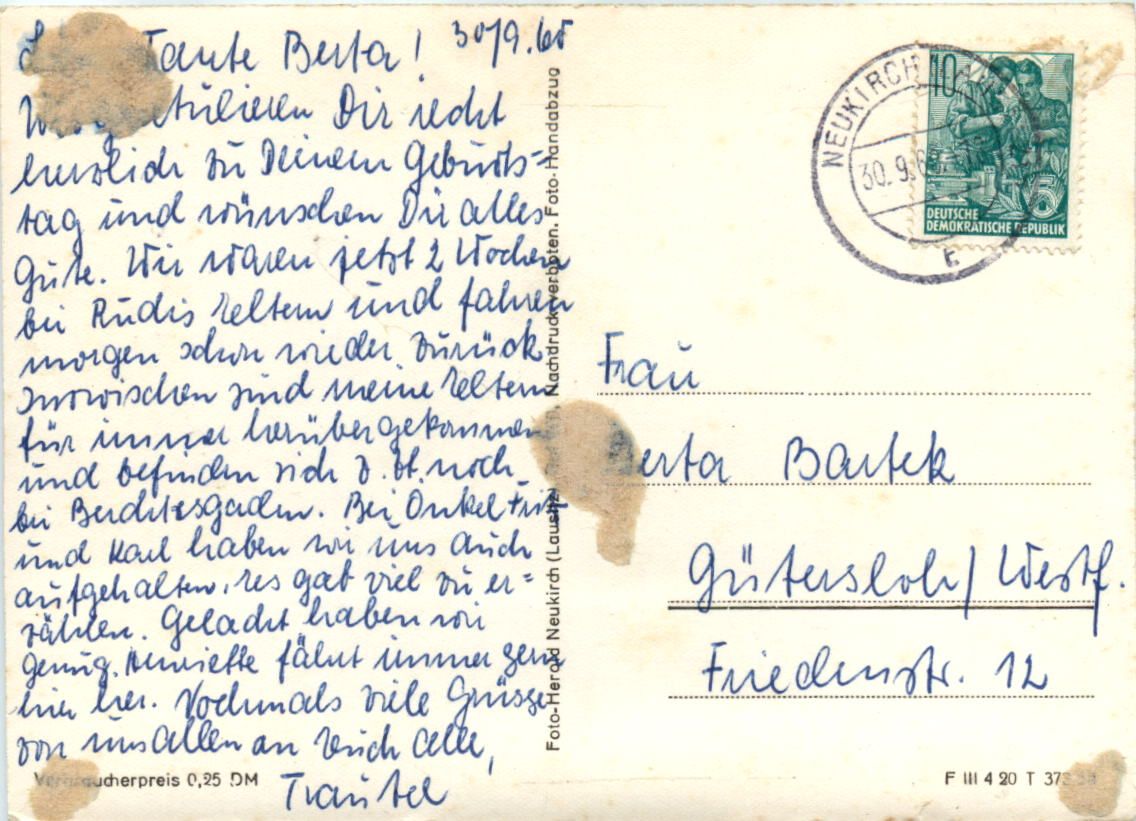 Tante Berta! 30/9.60
Wir gratulieren Dir recht
herzlich zu Deinem Geburts-
tag und wünschen Dir alles
Gute. Wir waren jetzt 2 Wochen
bei Rudis Eltern und fahren
morgen schon wieder zurück
Inzwischen sind meine Eltern
für immer herübergekommen
und befinden sich z. Zt. noch
bei Berchtesgaden. Bei Onkel Fritz
und Karl haben wir uns auch
aufgehalten, es gab viel zu er=
zählen. Gelacht haben wir
genug. Henriette fährt immer gern
hier her. Nochmals viele Grüsse
von uns Allen an Euch Alle,
Trautel
Verbraucherpreis 0,25 DM
Foto-Herold Neukirch (Lausitz) Nachdruck verboten. Foto-Handabzug
NEUKIRCH
30.9.60
E
10
5
DEUTSCHE
DEMOKRATISCHE REPUBLIK
Frau
Berta Bartek
Gütersloh/Westf.
Friedenstr. 12
F III 4 20 T 373